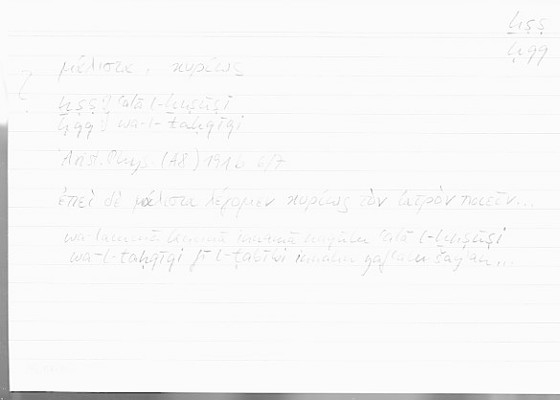 ḫṣṣ
ḥqq
μάλιστα, κυρίως
ḫṣṣ ʿalā l-ḫuṣūṣi
ḥqq wa-l-taḥqīqi
Arist. Phys. (A8) 191b 6/7
ἐπεὶ δὲ μάλιστα λέγομεν κυρίως τὸν ἰατρὸν ποιεῖν...
wa-lammā kunnā innamā naqūlu ʿalā l-ḫuṣūṣi
wa-l-taḥqīqi fī l-ṭabībi innahu yafʿalu šayʾan...